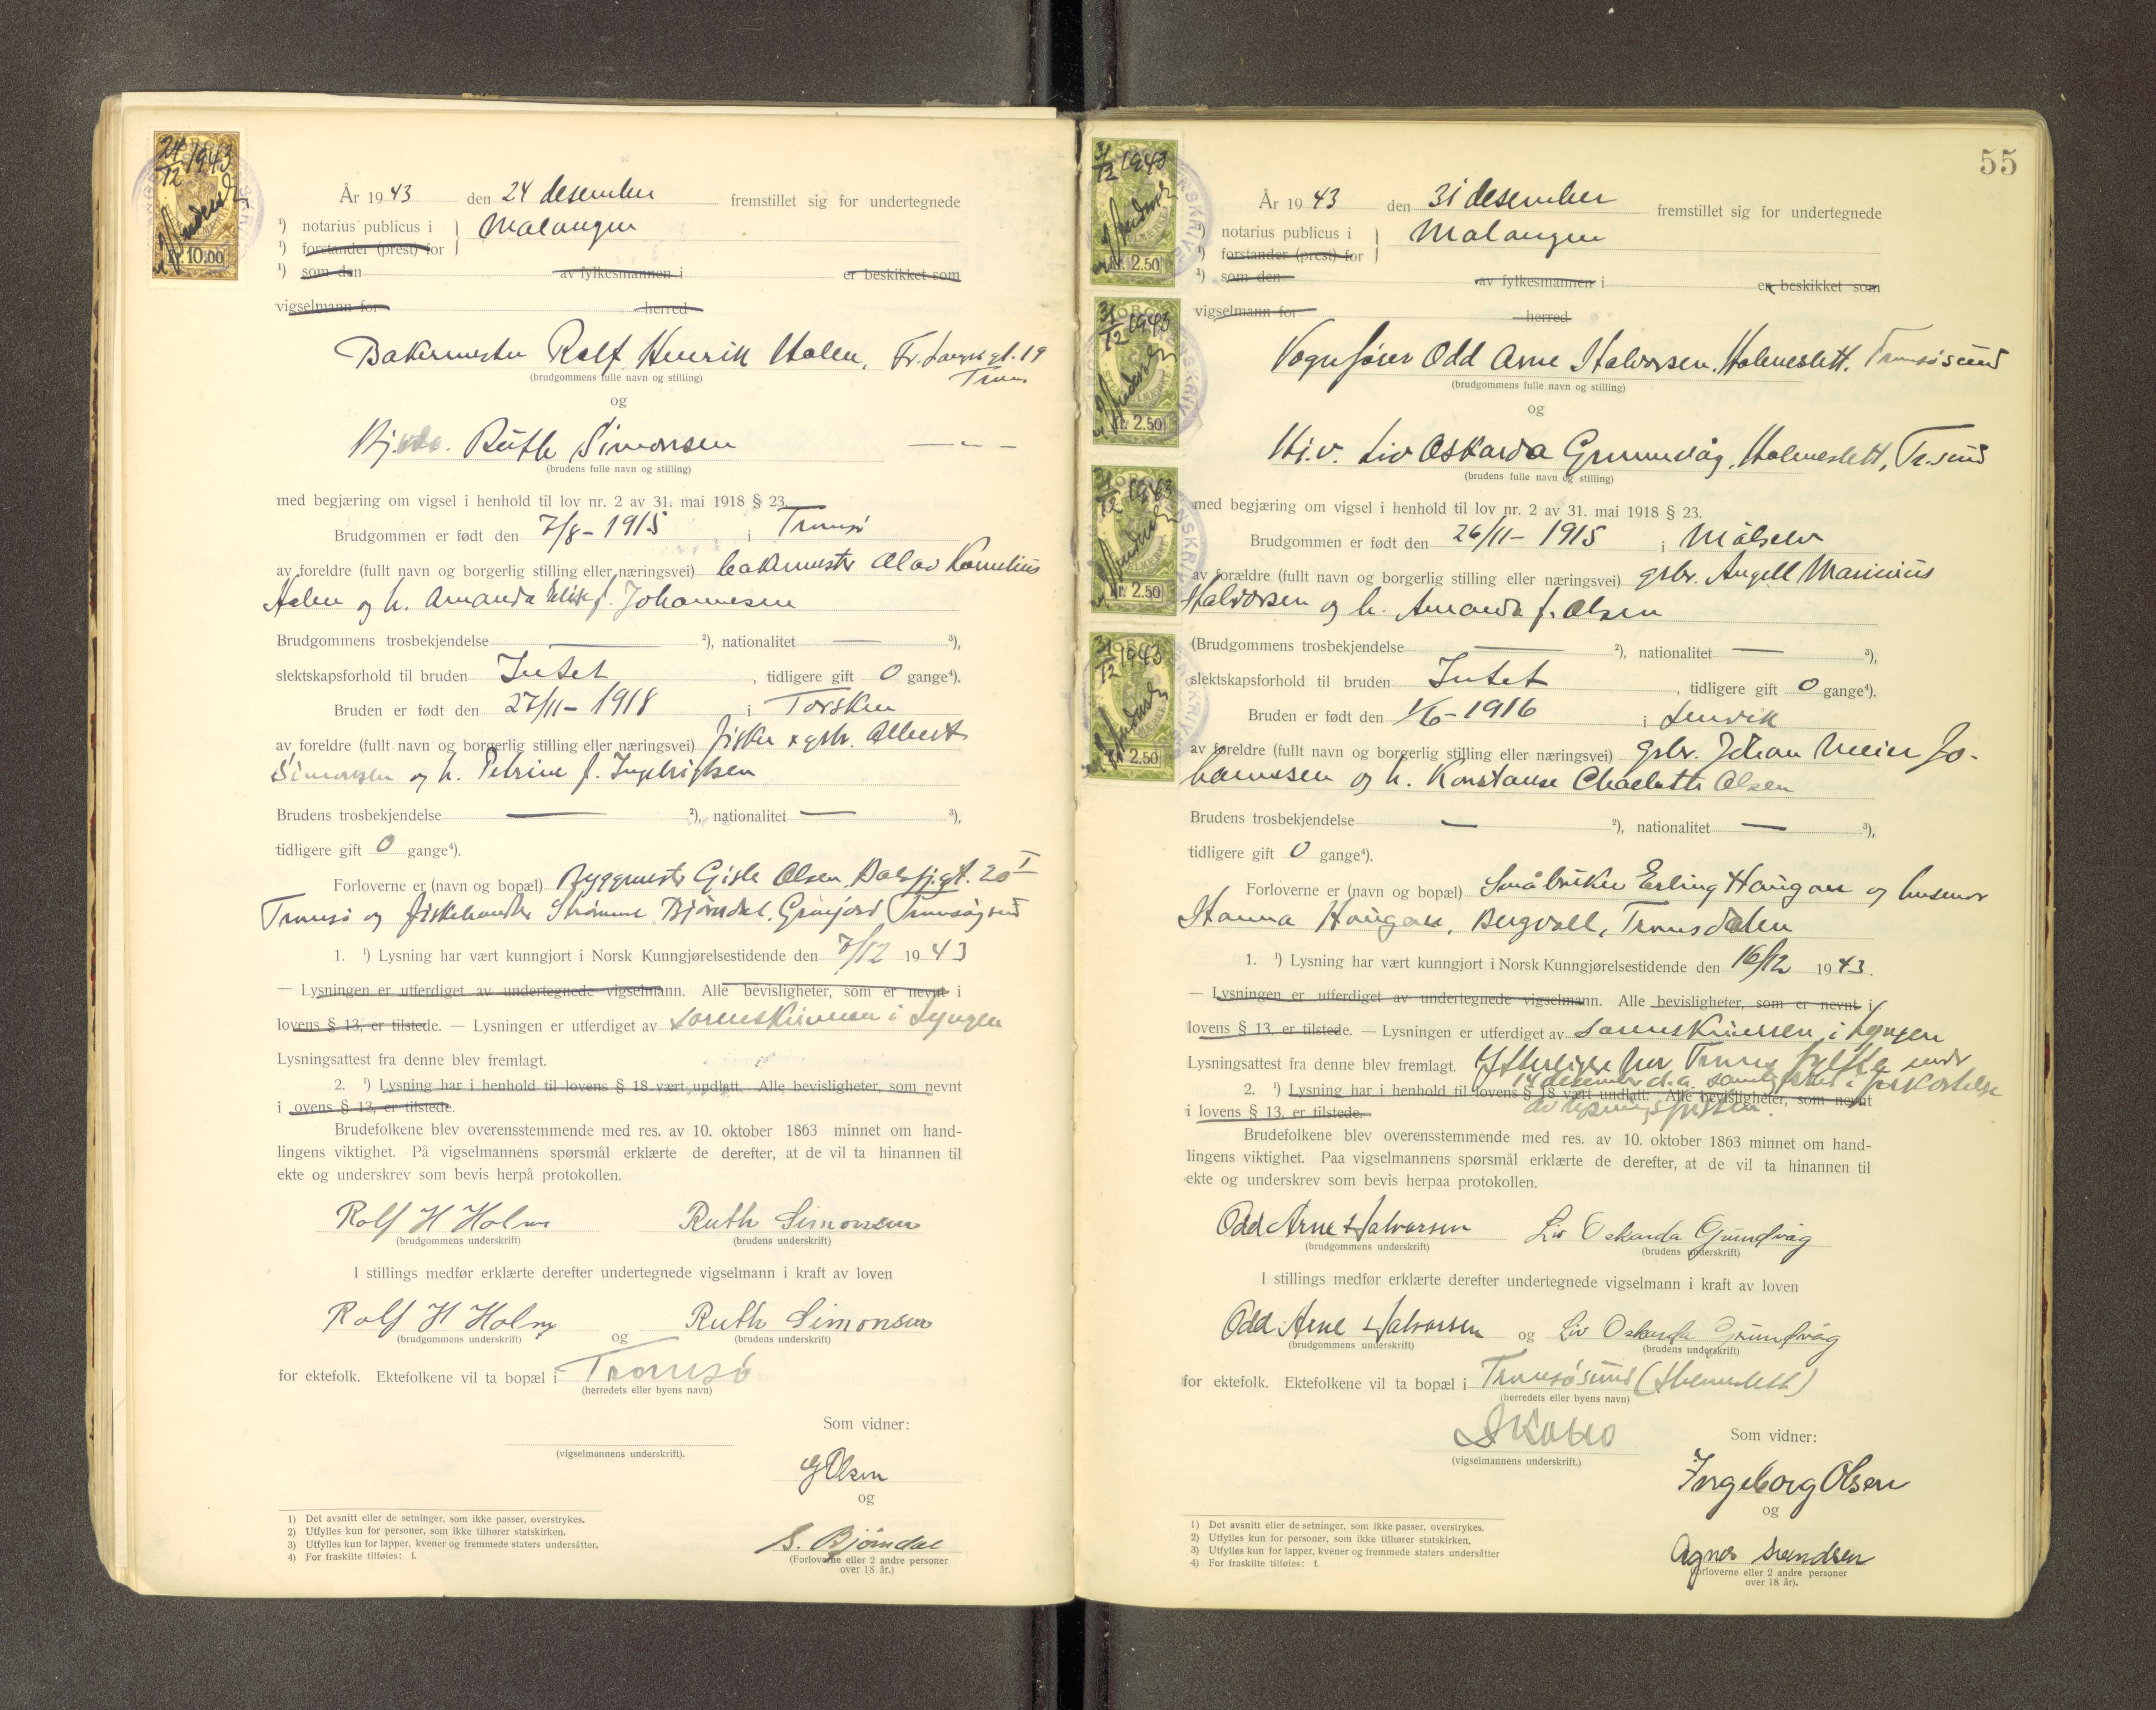 24/12 1943
Kr. 10.00
År 1943 den 24 desember fremstillet sig for undertegnede
¹) notarius publicus i } Malangen
¹) forstander (prest) for
¹) som den av fylkesmannen i er beskikket som
vigselmann for herred
Bakermester Rolf Henrik Holm, Fr. Langesgt. 19
Troms
(brudgommens fulle navn og stilling)
og
Hj. Ruth Simonsen — " —
(brudens fulle navn og stilling)
med begjæring om vigsel i henhold til lov nr. 2 av 31. mai 1918 § 23.
Brudgommen er født den 7/8 - 1915 i Tromsø
av foreldre (fullt navn og borgerlig stilling eller næringsvei) bakermester Olav Kornelius
Holm og h. Amanda Elise f. Johannesen
Brudgommens trosbekjendelse — ²), nationalitet — ³),
slektskapsforhold til bruden Intet, tidligere gift 0 gange⁴).
Bruden er født den 27/11 - 1918 i Torsken
av foreldre (fullt navn og borgerlig stilling eller næringsvei) fisker x gbr. Albert
Simonsen og h. Petrine f. Ingebrigtsen
Brudens trosbekjendelse — ²), nationalitet — ³),
tidligere gift 0 gange⁴).
Forloverne er (navn og bopæl) Byggmester Gisle Olsen, Balsfj.gt. 20 I
Tromsø og fiskehandler Bjørndal, Tromsøysund
1. ¹) Lysning har vært kunngjort i Norsk Kunngjørelsestidende den 7/12 1943
— Lysningen er utferdiget av undertegnede vigselmann. Alle bevisligheter, som er nevnt i
lovens § 13, er tilstede. — Lysningen er utferdiget av sorenskriveren i Lyngen
Lysningsattest fra denne blev fremlagt.
2. ¹) Lysning har i henhold til lovens § 18 vært undlatt. Alle bevisligheter, som nevnt
i ovens § 13, er tilstede.
Brudefolkene blev overensstemmende med res. av 10. oktober 1863 minnet om hand-
lingens viktighet. På vigselmannens spørsmål erklærte de derefter, at de vil ta hinannen til
ekte og underskrev som bevis herpå protokollen.
Rolf H Holm Ruth Simonsen
(brudgommens underskrift) (brudens underskrift)
I stillings medfør erklærte derefter undertegnede vigselmann i kraft av loven
Rolf H Holm og Ruth Simonsen
(brudgommens underskrift) (brudens underskrift)
for ektefolk. Ektefolkene vil ta bopæl i Tromsø
(herredets eller byens navn)
Som vidner:
(vigselmannens underskrift).
G Olsen
og
S. Bjørndal
(Forloverne eller 2 andre personer
over 18 år.)
1) Det avsnitt eller de setninger, som ikke passer, overstrykes.
2) Utfylles kun for personer, som ikke tilhører statskirken.
3) Utfylles kun for lapper, kvener og fremmede staters undersåtter.
4) For fraskilte tilføies: f.
55
31/12 1943
Kr. 2.50
31/12 1943
Kr. 2.50
31/12 1943
Kr. 2.50
31/12 1943
Kr. 2.50
År 1943 den 31 desember fremstillet sig for undertegnede
¹) notarius publicus i } Malangen
¹) forstander (prest) for
¹) som den av fylkesmannen i er beskikket som
vigselmann for herred
Vognfører Odd Arne Halvorsen, Holmeslett, Tromsøsund
(brudgommens fulle navn og stilling)
og
Hj.v. Liv Oskarda Grundvåg, Holmeslett, Tr.sund
(brudens fulle navn og stilling)
med begjæring om vigsel i henhold til lov nr. 2 av 31. mai 1918 § 23.
Brudgommen er født den 26/11 - 1915 i Målselv
av forældre (fullt navn og borgerlig stilling eller næringsvei) gbr. Angell Marinius
Halvorsen og h. Amanda f. Olsen
(Brudgommens trosbekjendelse — ²), nationalitet — ³),
slektskapsforhold til bruden Intet, tidligere gift 0 gange⁴).
Bruden er født den 1/6 - 1916 i Lenvik
av foreldre (fullt navn og borgerlig stilling eller næringsvei) gbr. Johan Meier Jo-
hannesen og h. Konstanse Charlotte Olsen
Brudens trosbekjendelse — ²), nationalitet — ³),
tidligere gift 0 gange⁴).
Forloverne er (navn og bopæl) Småbruker Erling Haugan og husmor
Hanna Haugan, Bergvoll, Tromsdalen
1. ¹) Lysning har vært kunngjort i Norsk Kunngjørelsestidende den 16/12 1943.
— Lysningen er utferdiget av undertegnede vigselmann. Alle bevisligheter, som er nevnt i
lovens § 13, er tilstede. — Lysningen er utferdiget av sorenskriveren i Lyngen
Lysningsattest fra denne blev fremlagt. Ytterligere har Troms fylke under
14 desember d.a. samtykket i forkortelse
2. ¹) Lysning har i henhold til lovens § 18 vært undlatt. Alle bevisligheter, som nevnt
av lysningsfristen.
i lovens § 13, er tilstede.
Brudefolkene blev overensstemmende med res. av 10. oktober 1863 minnet om hand-
lingens viktighet. Paa vigselmannens spørsmål erklærte de derefter, at de vil ta hinannen til
ekte og underskrev som bevis herpaa protokollen.
Odd Arne Halvorsen Liv Oskarda Grundvåg
(brudgommens underskrift) (brudens underskrift)
I stillings medfør erklærte derefter undertegnede vigselmann i kraft av loven
Odd Arne Halvorsen og Liv Oskarda Grundvåg
(brudgommens underskrift) (brudens underskrift)
for ektefolk. Ektefolkene vil ta bopæl i Tromsøsund (Holmeslett)
(herredets eller byens navn)
Som vidner:
(vigselmannens underskrift.)
Ingeborg Olsen
og
Agnes Svendsen
(Forloverne eller 2 andre personer
over 18 år).
1) Det avsnitt eller de setninger, som ikke passer, overstrykes.
2) Utfylles kun for personer, som ikke tilhører statskirken.
3) Utfylles kun for lapper, kvener og fremmede staters undersåtter
4) For fraskilte tilføies: f.